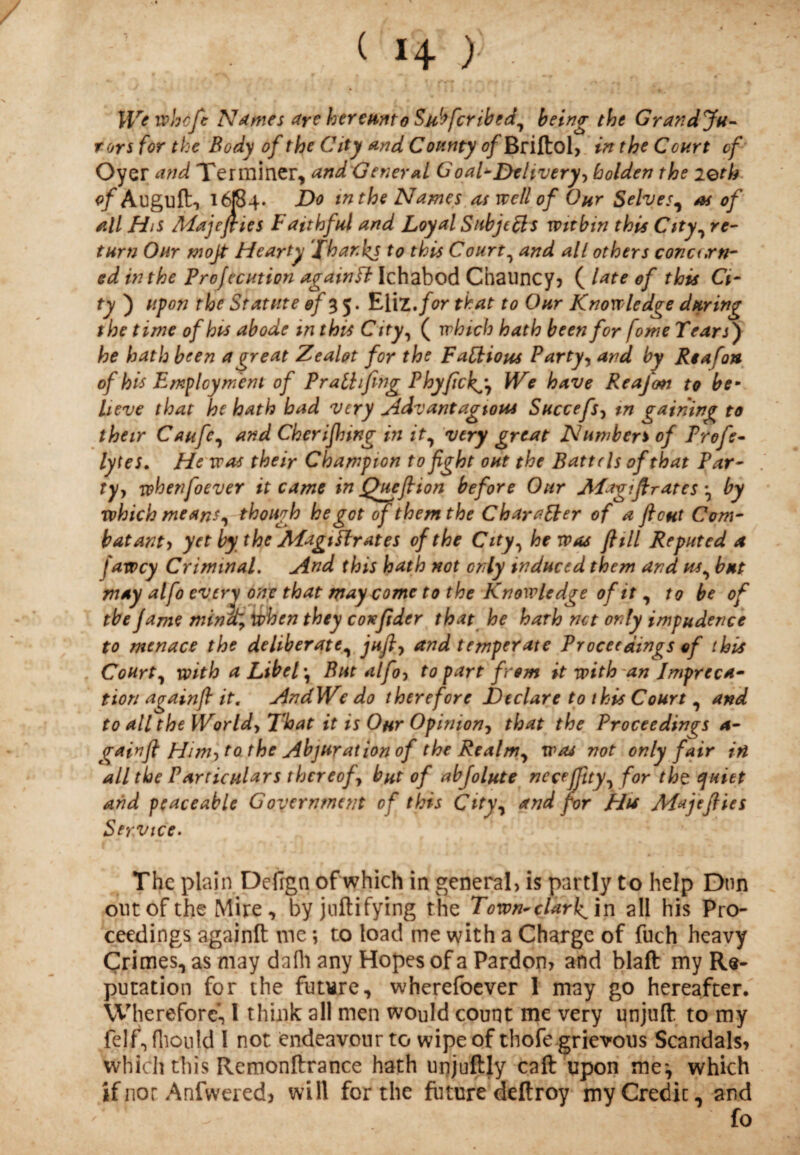 ( 14 )
We whose Names are hereunto Subscribed, being the Grand Ju-
rors for the Body of the City and County of Bristol, in the Court of
Oyer and Terminer, and General Goal-Delivery, holden the 20th
of August, 1684. Do in the Names as well of Our Selves, as of
all His Majesties Faithful and Loyal Subjects within this City, re-
turn Our most Hearty Thanks to this Court, and all others concern-
ed in the Prosecution against Ichabod Chauncy, ( late of this Ci-
ty ) upon the Statute of 35. Eliz. for that to Our Knowledge during
the time of his abode in this City, ( which hath been for some Years)
he hath been a great Zealot for the Factious Party, and by Reason
of his Employment of Practising Physick; We have Reason to be-
lieve that he hath had very Advantagious Success, in gaining to
their Cause, and Cherishing in it, very great Numbers of Prose-
lytes. He was their Champion to fight out the Battels of that Par-
ty, whensoever it came in Question before Our Magistrates; by
which means, though he got of them the Character of a stout Com-
batant, yet by the Magistrates of the City, he was still Reputed a
sawcy Criminal. And this hath not only induced them and us, but
may also every one that may come to the Knowledge of it, to be of
the same mind; when they consider that he hath not only impudence
to menace the deliberate, just, and temperate Proceedings of this
Court, with a Libel; But also, to part from it with an Impreca-
tion against it. And We do therefore Declare to this Court, and
to all the World, That it is Our Opinion, that the Proceedings a-
gainst Him, to the Abjuration of the Realm, was not only fair in
all the Particulars thereof, but of absolute necessity, for the quiet
and peaceable Government of this City, and for His Majesties
Service.
The plain Design of which in general, is partly to help Dun
out of the Mire, by justifying the Town-clark in all his Pro-
ceedings against me; to load me with a Charge of such heavy
Crimes, as may dash any Hopes of a Pardon, and blast my Re-
putation for the future, wheresoever I may go hereafter.
Wherefore, I think all men would count me very unjust to my
self, should I not endeavour to wipe of those grievous Scandals,
which this Remonstrance hath unjustly cast upon me; which
if not Answered, will for the future destroy my Credit, and
so